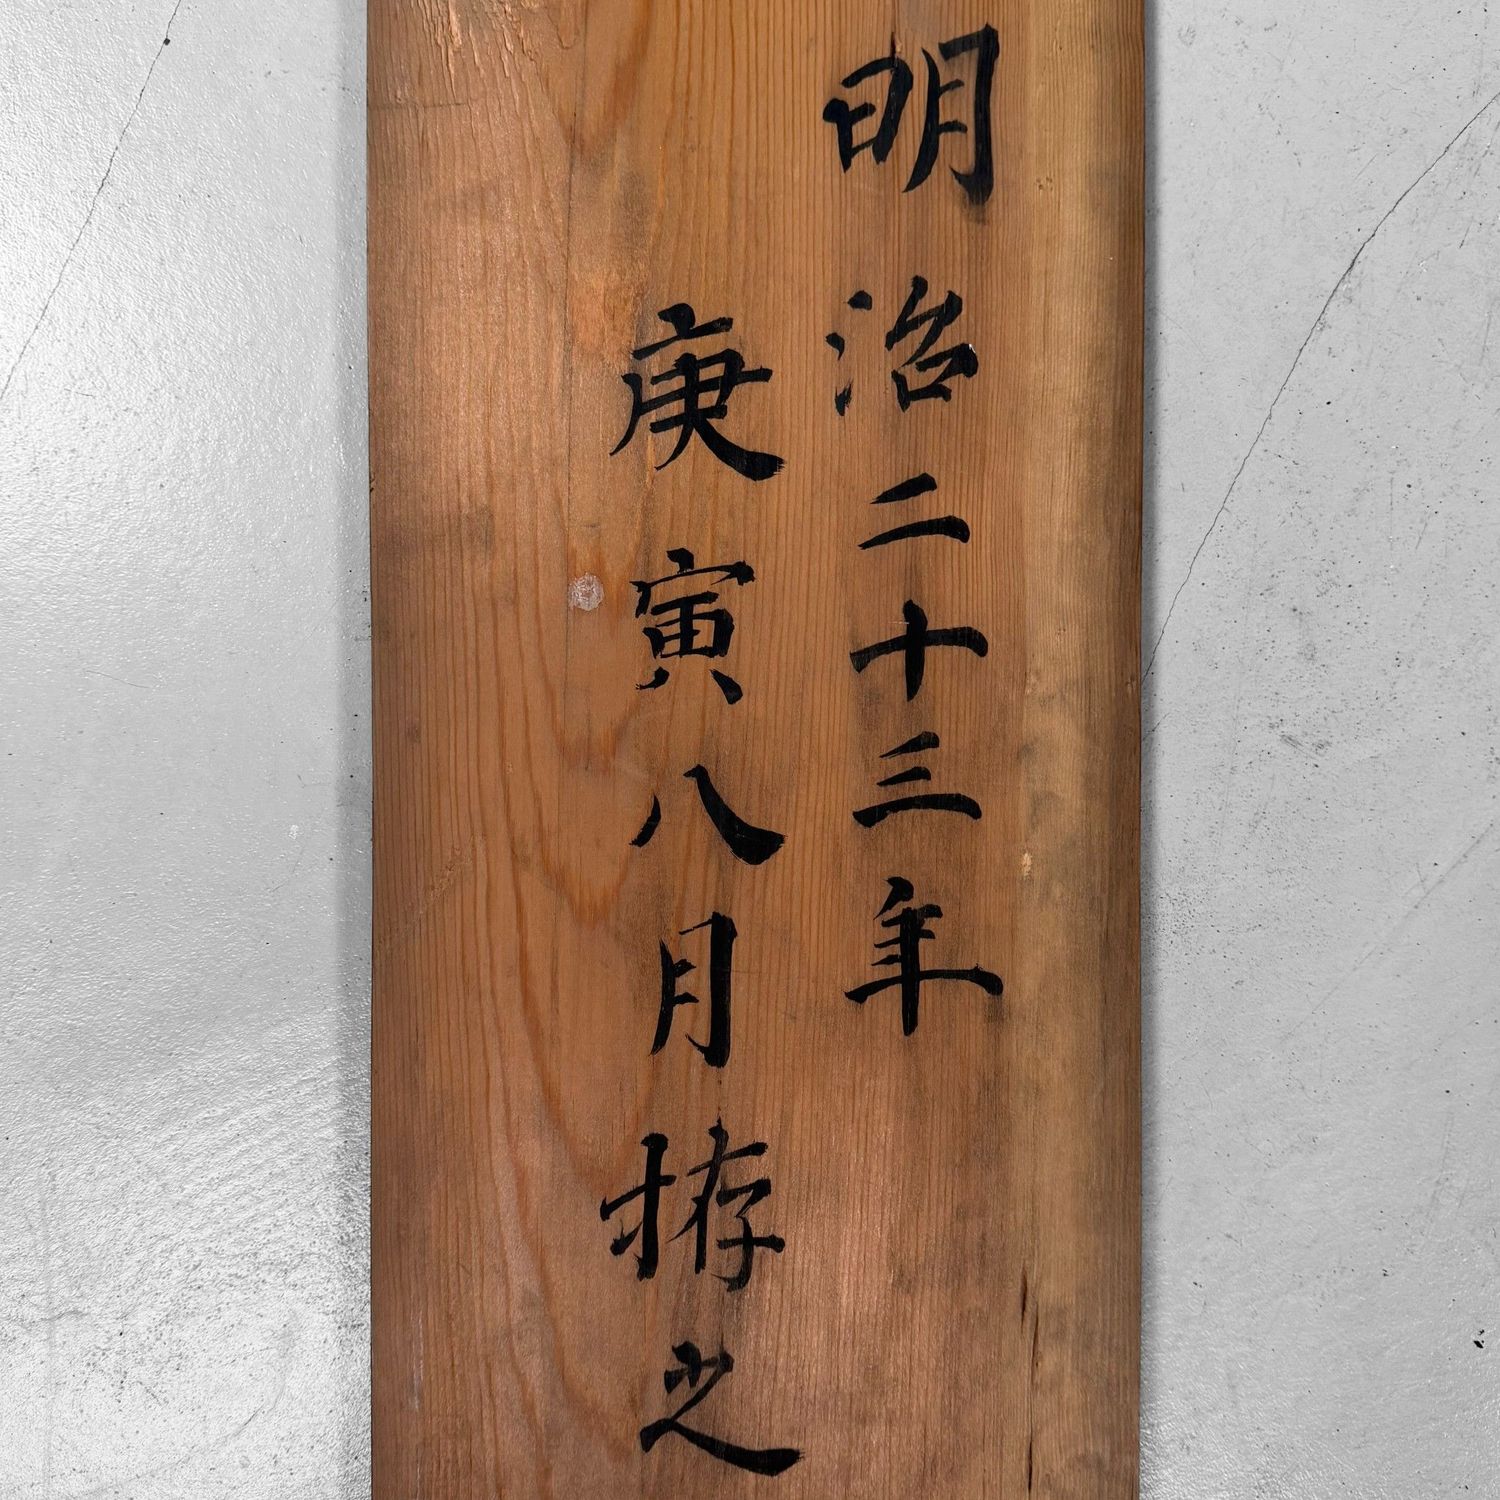 明治二十三年
庚寅八月拵之